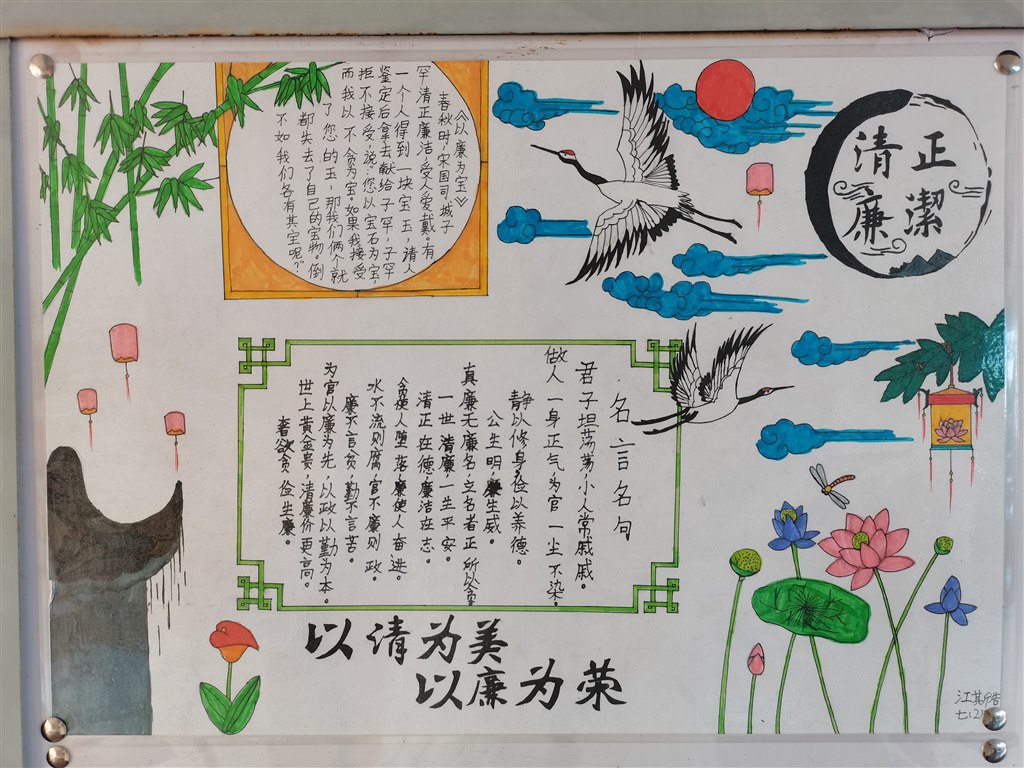 正潔
清廉
《以廉为宝》
春秋时,宋国司城子
罕清正廉洁,受人爱戴。有
一个人得到一块宝玉,清人
鉴定后拿去献给子罕,子罕
拒不接受,说:“您以宝石为宝,
而我以不贪为宝。如果我接受
了您的玉,那我们俩个就
都失去了自己的宝物。倒
不如我们各有其宝呢?”
名言名句
君子坦荡荡,小人常戚戚。
做人一身正气,为官一尘不染。
静以修身,俭以养德。
公生明,廉生威。
真廉无廉名,立名者正所以贪。
一世清廉,一生平安。
清正在德,廉洁在志。
贪使人堕落,廉使人奋进。
水不流则腐,官不廉则政。
廉不言贫,勤不言苦。
为官以廉为先,以政以勤为本。
世上黄金贵,清廉价更高。
奢欲贪,俭生廉。
以清为美
以廉为荣
七(2)